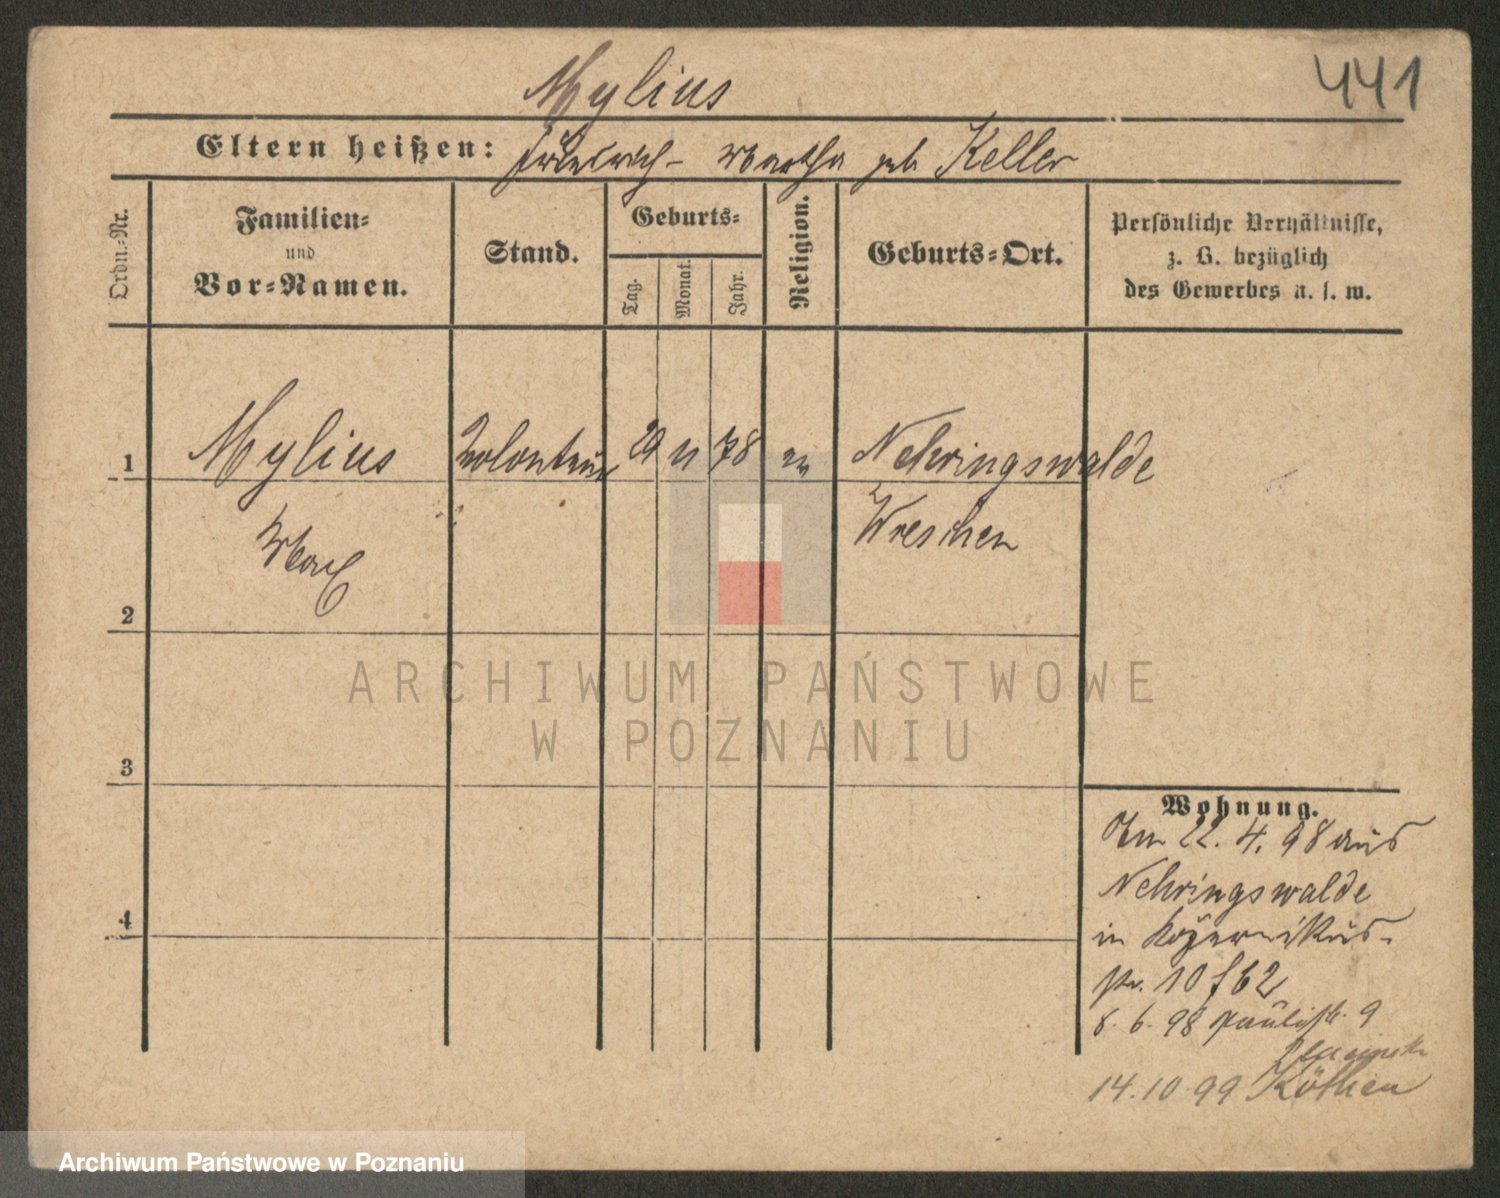 Mylius
441
Eltern heißen: Friedrich - Martha geb. Keller
Ordn.-Nr.
Familien-
und
Vor-Namen.
Stand.
Geburts-
Tag.
Monat.
Jahr.
Religion.
Geburts-Ort.
Persönliche Verhältnisse,
z. B. bezüglich
des Gewerbes u. s. w.
1 Mylius Volontair 29 11 78 ev Nehringswalde
Max Wreschen
2
3
4
ARCHIWUM PAŃSTWOWE
W POZNANIU
Wohnung.
Am 22. 4. 98 aus
Nehringswalde
in
10
8. 6. 98 Paulistr. 9
14.10 99 Köthen
Archiwum Państwowe w Poznaniu